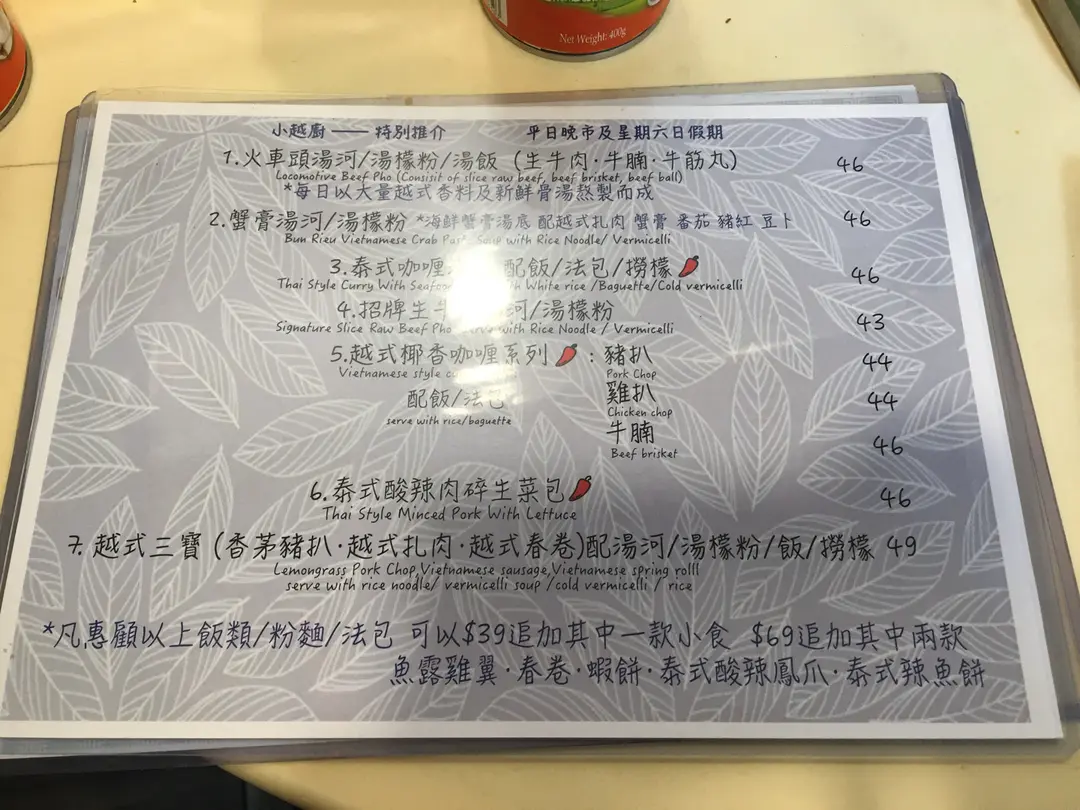 Net Weight: 400g
小越廚 —— 特別推介 平日晚市及星期六日假期
1.火車頭湯河/湯檬粉/湯飯 (生牛肉·牛腩·牛筋丸) 46
Locomotive Beef Pho (Consisit of slice raw beef, beef brisket, beef ball)
*每日以大量越式香料及新鮮骨湯熬製而成
2.蟹膏湯河/湯檬粉 *海鮮蟹膏湯底 配越式扎肉 蟹膏 番茄 豬紅 豆卜 46
Bun Rieu Vietnamese Crab Paste Soup with Rice Noodle/ Vermicelli
3.泰式咖喱 配飯/法包/撈檬 46
Thai Style Curry With Seafood White rice /Baguette/Cold vermicelli
4.招牌生牛 河/湯檬粉 43
Signature Slice Raw Beef Pho with Rice Noodle / Vermicelli
5.越式椰香咖喱系列 : 豬扒 44
Vietnamese style Pork Chop
配飯/法包 雞扒 44
serve with rice/baguette Chicken chop
牛腩 46
Beef brisket
6.泰式酸辣肉碎生菜包 46
Thai Style Minced Pork With Lettuce
7. 越式三寶 (香茅豬扒·越式扎肉·越式春卷)配湯河/湯檬粉/飯/撈檬 49
Lemongrass Pork Chop,Vietnamese sausage,Vietnamese spring rolll
serve with rice noodle/ vermicelli soup /cold vermicelli / rice
*凡惠顧以上飯類/粉麵/法包 可以$39追加其中一款小食 $69追加其中兩款
魚露雞翼·春卷·蝦餅·泰式酸辣鳳爪·泰式辣魚餅